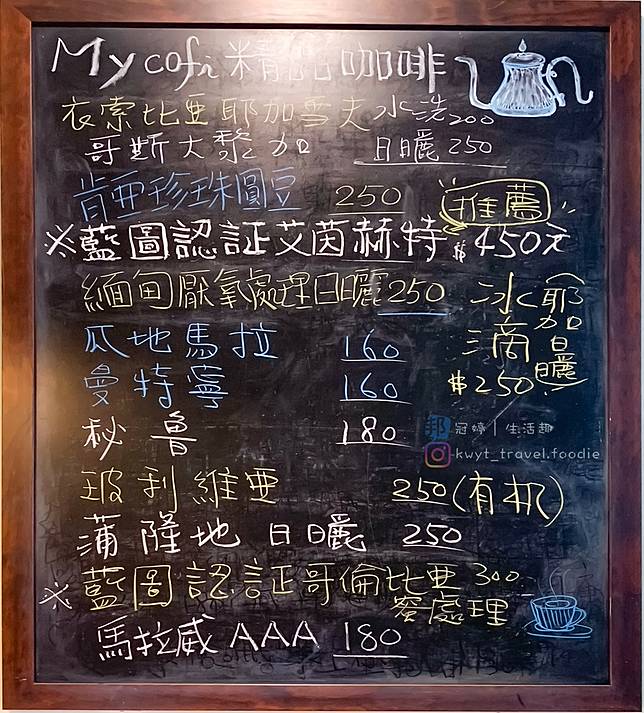 My cofi 精品咖啡
衣索比亞耶加雪夫水洗200
哥斯大黎加 日曬 250
肯亞珍珠圓豆 250
推薦
※藍圖認証艾茵赫特 $450元
緬甸厭氧處理日曬250
冰滴
(耶加日曬)
$250
瓜地馬拉 160
曼特寧 160
秘魯 180
邦 冠婷｜生活趣
kwyt_travel.foodie
玻利維亞 250(有机)
蒲隆地 日曬 250
※藍圖認証哥倫比亞 300
蜜處理
馬拉威AAA 180